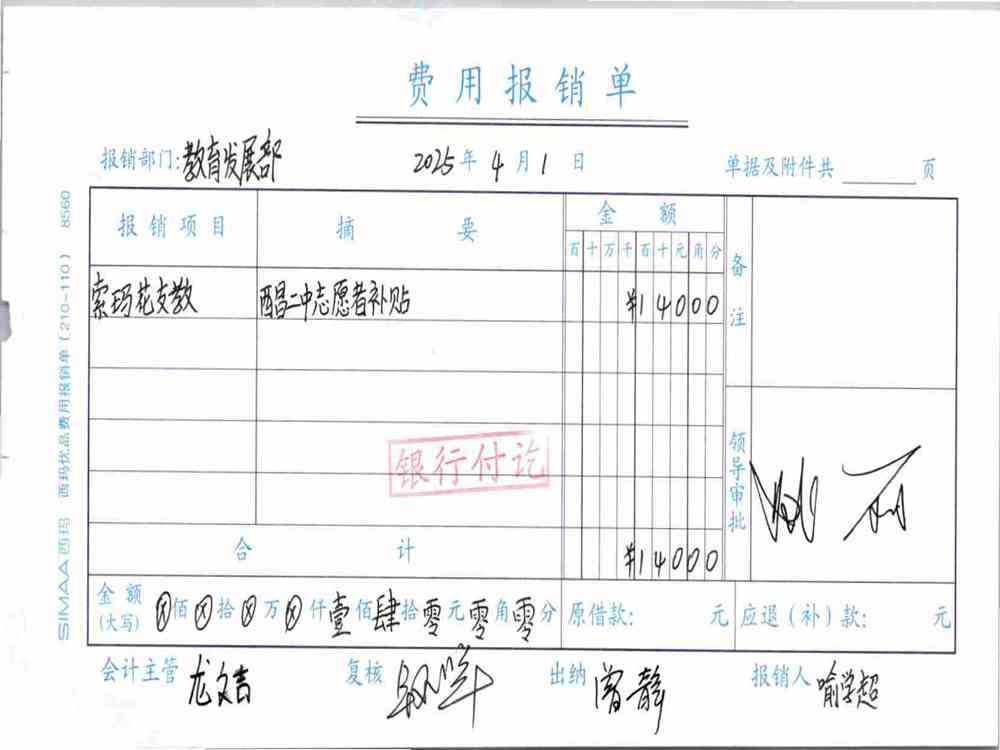 费用报销单
报销部门:教育发展部 2025年4月1日 单据及附件共 页
报销项目 摘要 金额 备注
百十万千百十元角分
索玛花支教 西昌二中志愿者补贴 ¥14000
银行付讫
领导审批
合计 ¥14000
金额(大写) ⊗佰⊗拾⊗万⊗仟壹佰肆拾零元零角零分 原借款: 元 应退(补)款: 元
会计主管 龙文吉 复核 出纳 曾静 报销人 喻学超
SIMAA 西玛 西玛优品费用报销单(210-110) 8560